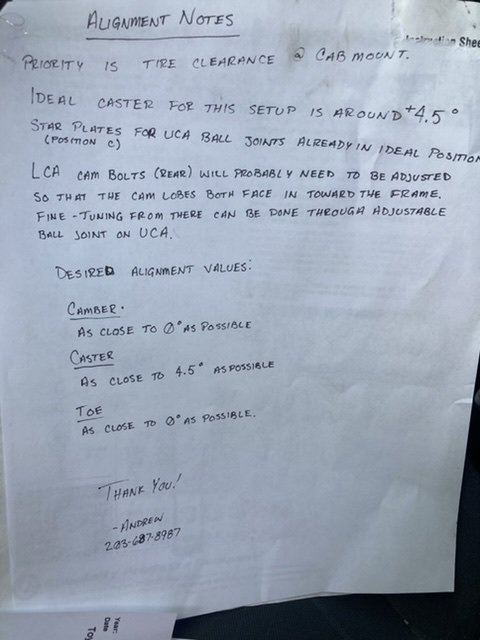 ALIGNMENT NOTES
Instruction Shee
PRIORITY IS TIRE CLEARANCE @ CAB MOUNT.
IDEAL CASTER FOR THIS SETUP IS AROUND +4.5°
STAR PLATES FOR UCA BALL JOINTS ALREADY IN IDEAL POSITION
(POSITION C)
LCA CAM BOLTS (REAR) WILL PROBABLY NEED TO BE ADJUSTED
SO THAT THE CAM LOBES BOTH FACE IN TOWARD THE FRAME.
FINE-TUNING FROM THERE CAN BE DONE THROUGH ADJUSTABLE
BALL JOINT ON UCA.
DESIRED ALIGNMENT VALUES:
CAMBER.
AS CLOSE TO 0° AS POSSIBLE
CASTER
AS CLOSE TO 4.5° AS POSSIBLE
TOE
AS CLOSE TO 0° AS POSSIBLE.
THANK YOU!
-ANDREW
203-687-8987
Year:
Date
Toy